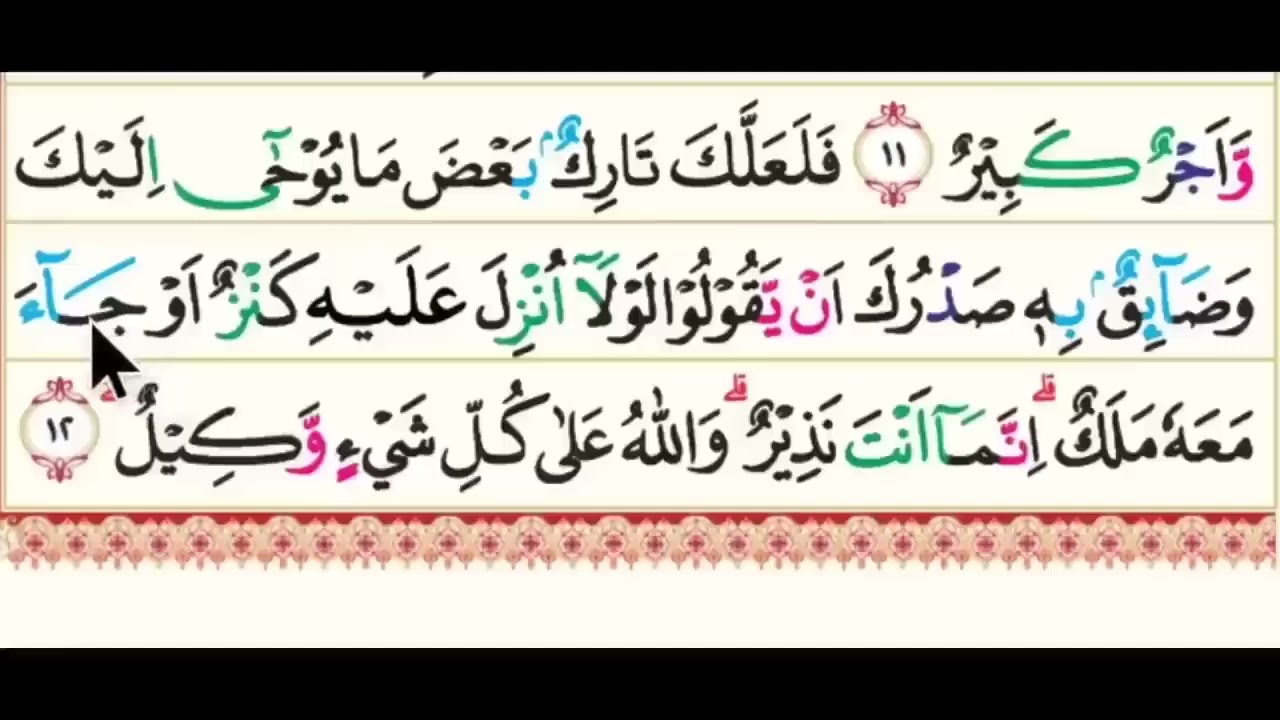 وَّاَجْرٌ كَبِيْرٌ ١١ فَلَعَلَّكَ تَارِكٌۢ بَعْضَ مَا يُوْحٰٓى اِلَيْكَ
وَضَآىِٕقٌۢ بِهٖ صَدْرُكَ اَنْ يَّقُوْلُوْا لَوْلَآ اُنْزِلَ عَلَيْهِ كَنْزٌ اَوْ جَآءَ
مَعَهٗ مَلَكٌ ۗ اِنَّمَآ اَنْتَ نَذِيْرٌ ۗ وَاللّٰهُ عَلٰى كُلِّ شَيْءٍ وَّكِيْلٌ ۗ ١٢